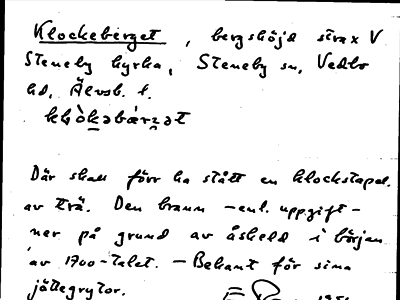 Klockeberget, bergshöjd strax V
Steneby kyrka, Steneby sn, Vedbo
hd, Älvsb. l.
Där skall förr ha stått en klockstapel
av trä. Den brann – enl. uppgift –
ner på grund av åskeld i början
av 1700-talet. – Bekant för sina
jättegrytor.